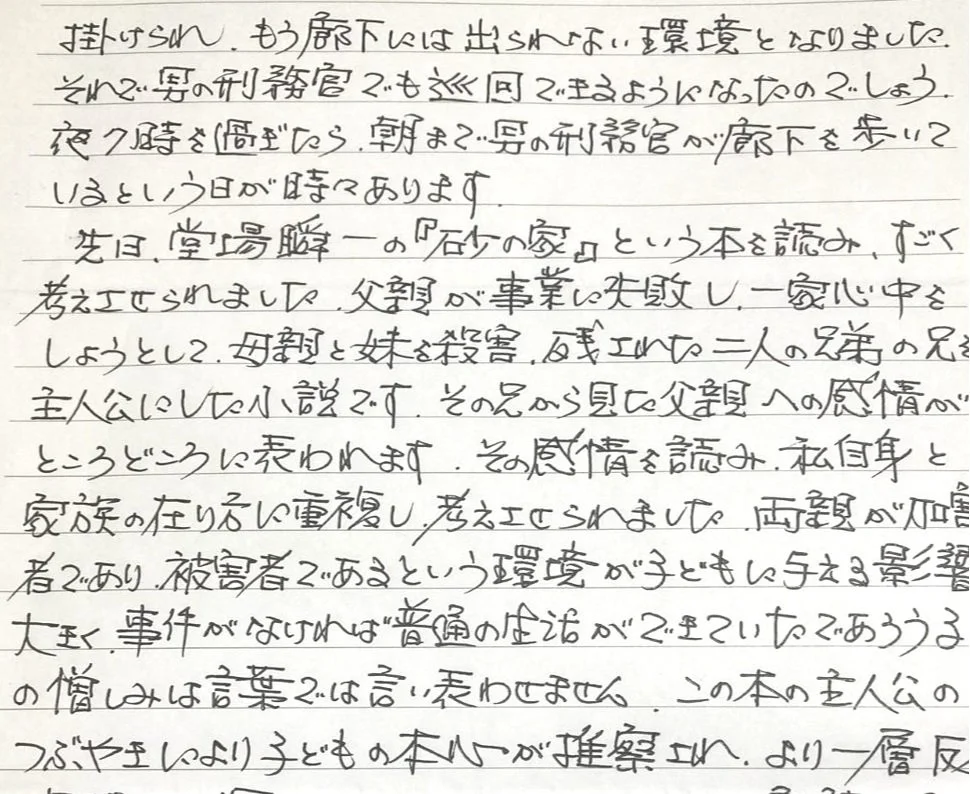 掛けられ、もう廊下には出られない環境となりました。
それで男の刑務官でも巡回できるようになったのでしょう。
夜7時を過ぎたら、朝まで男の刑務官が廊下を歩いて
いるという日が時々あります。
先日、堂場瞬一の『砂の家』という本を読み、すごく
考えさせられました。父親が事業に失敗し、一家心中を
しようとして、母親と妹を殺害、残された二人の兄弟の兄を
主人公にした小説です。その兄から見た父親への感情が
ところどころに表われます。その感情を読み、私自身と
家族の在り方に重複し、考えさせられました。両親が加害
者であり、被害者であるという環境が子どもに与える影響
大きく、事件がなければ普通の生活ができていたであろうる
の憎しみは言葉では言い表わせません。この本の主人公の
つぶやきにより子どもの本心が推察され、より一層反